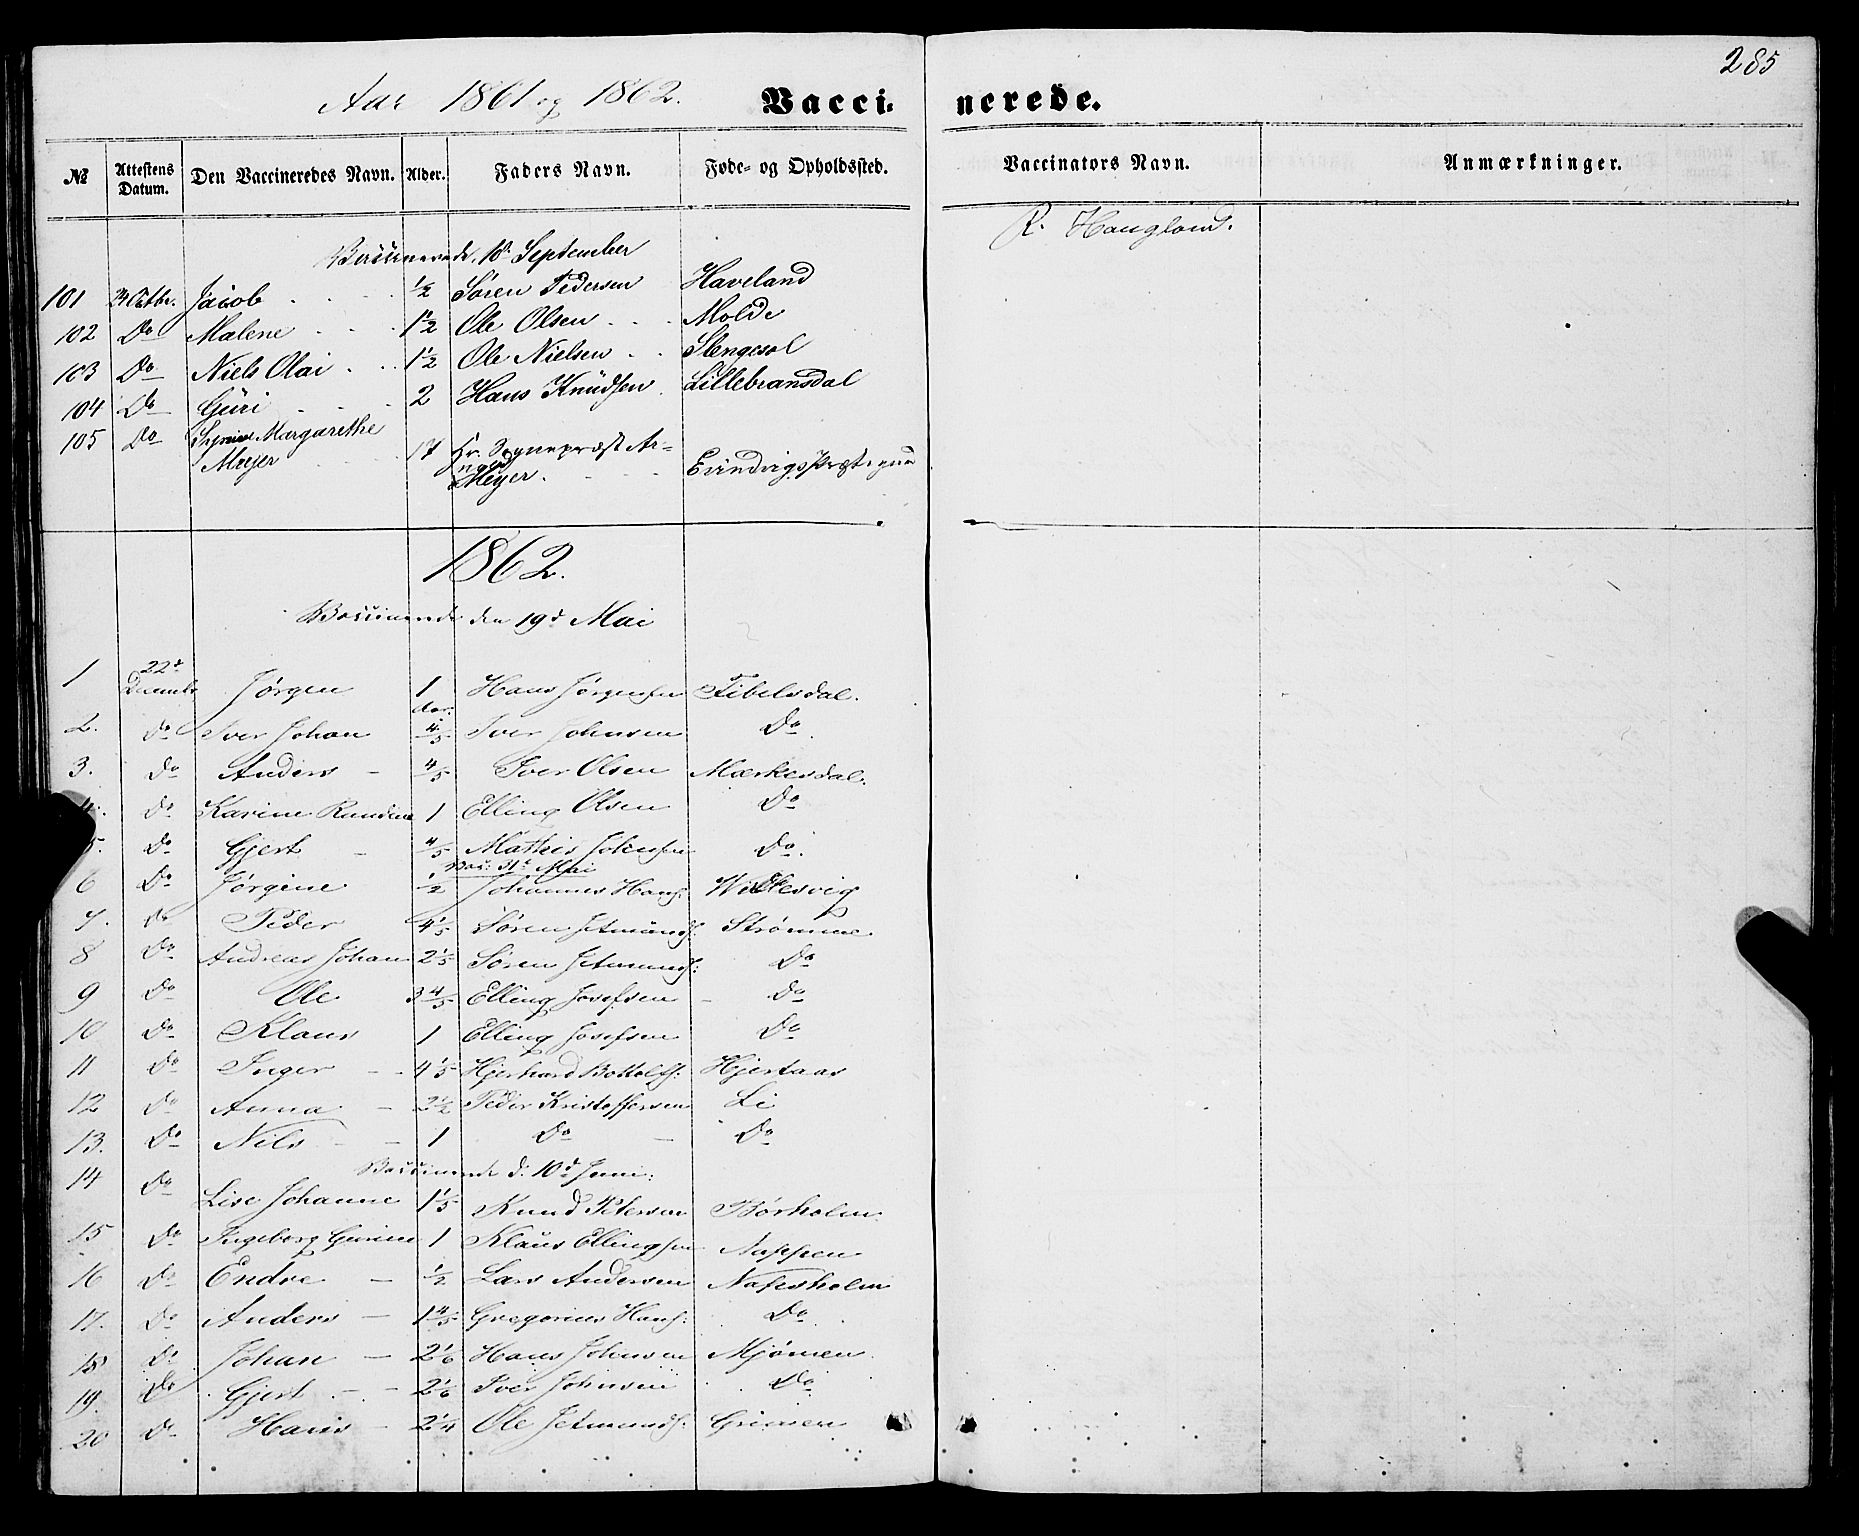 285
Aar 1861 og 1862. Vacci- nerede.
No Attestens Datum. Den Vaccineredes Navn. Alder. Faders Navn. Føde- og Opholdssted. Vaccinators Navn. Anmærkninger.
Vaccinerede 10de September R. Haugland.
101 Jacob ½ Søren Pedersen Haveland
102 Do Malene 1½ Ole Olsen Molde
103 Do Niels Olai 1½ Ole Nielsen
104 Do Güri 2 Hans Knüdsen Lillebransdal
105 Do Margarethe
Meyer 17 Hr. Sognepræst
Meyer. Evindvigs
1862.
Vaccinerede den 19d Mai
1 22d Decembr Jørgen 1 Aar. Hans Jørgensen
2. Do Iver Johan 4/5 Iver Johnsen Do
3. Do Anders 4/5 Iver Olsen Mærkesdal.
4. Do Karine 1 Elling Olsen Do
5. Do Gjert 4/5 Mathis Johnsen Do
Vac: 31t Mai
6 Do Jørgine ½ Johannes Hans:
7. Do Peder 4 1/5 Søren Jetmünds: Strømme
8 Do Andreas Johan 2 1/5 Søren Jetmunds: Do
9 Do Ole 3 4/5 Elling Josefsen Do
10 Do Klaus 1 Elling Josefsen Do
11 Do Inger 4 1/5 Hjertaas
12 Do Anna 2½ Peder Kristoffersen Li
13. Do Nils 1 Do Do
Vaccinerede d: 10d Juni:
14 Do Lise Johanne 1 1/5 Knud Petersen
15 Do Ingeborg 1 Klaus Ellingsen Nappen
16 Do Endre ½ Lars Andersen
17. Do Anders 1 4/5 Gregorius Hans: Do
18 Do Johan 2 1/6 Hans Johnsen Mjømen
19. Do Gjert 2 1/6 Iver Johnsen Do
20 Do Hans 2 1/4 Ole Jetmunds: Grimen